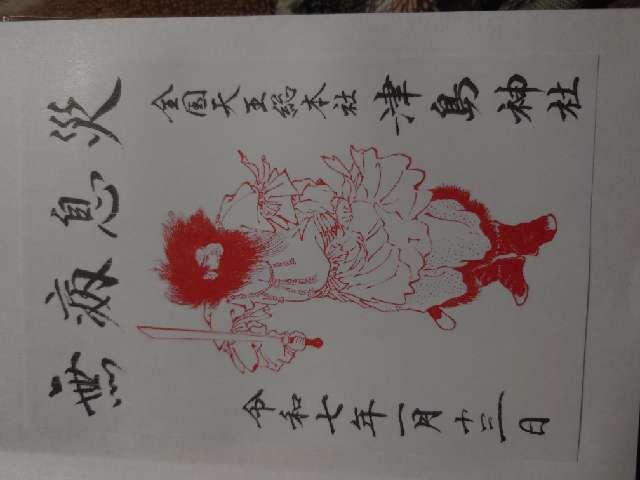 無病息災
全国天王総本社 津島神社
令和七年一月十三日